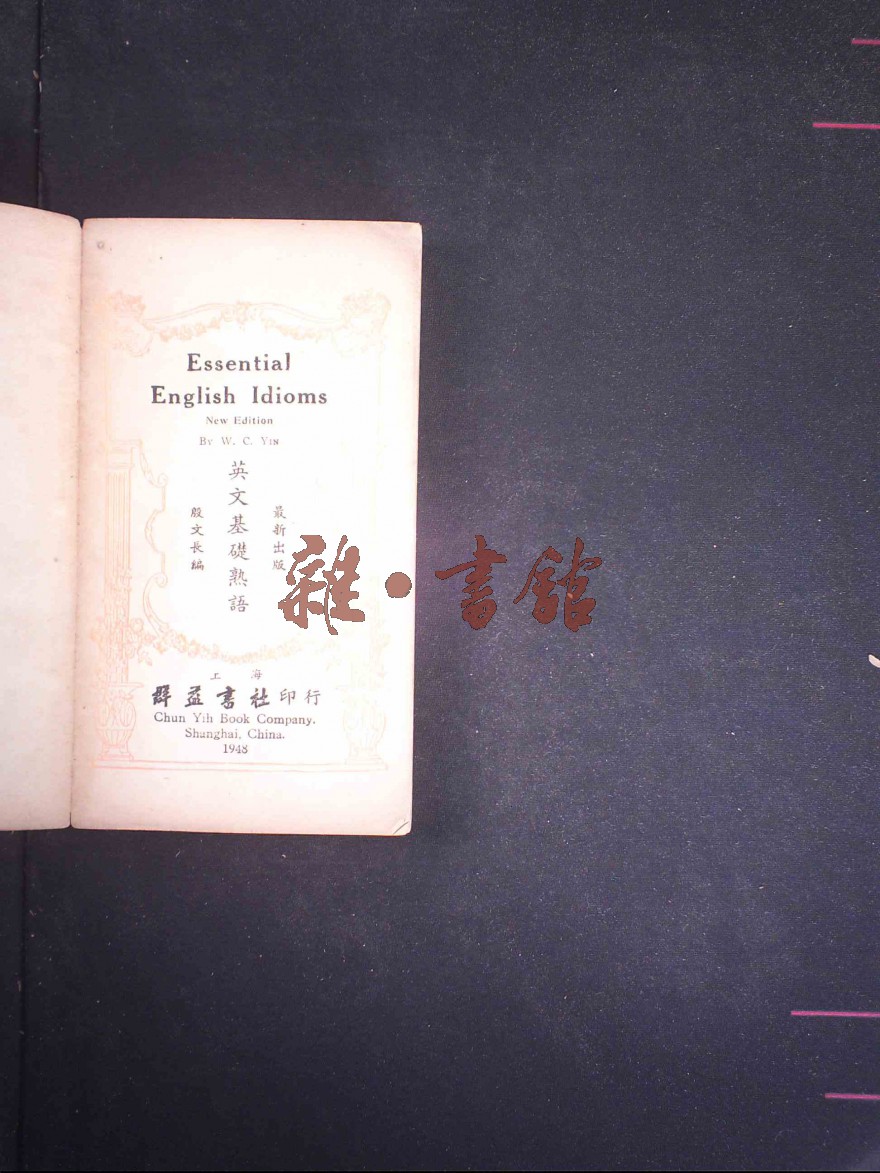 Essential
English Idioms
New Edition
By W. C. Yin
最新出版
英文基礎熟語
殷文長編
上海
群益書社印行
Chun Yih Book Company.
Shanghai, China.
1948
雜·書館